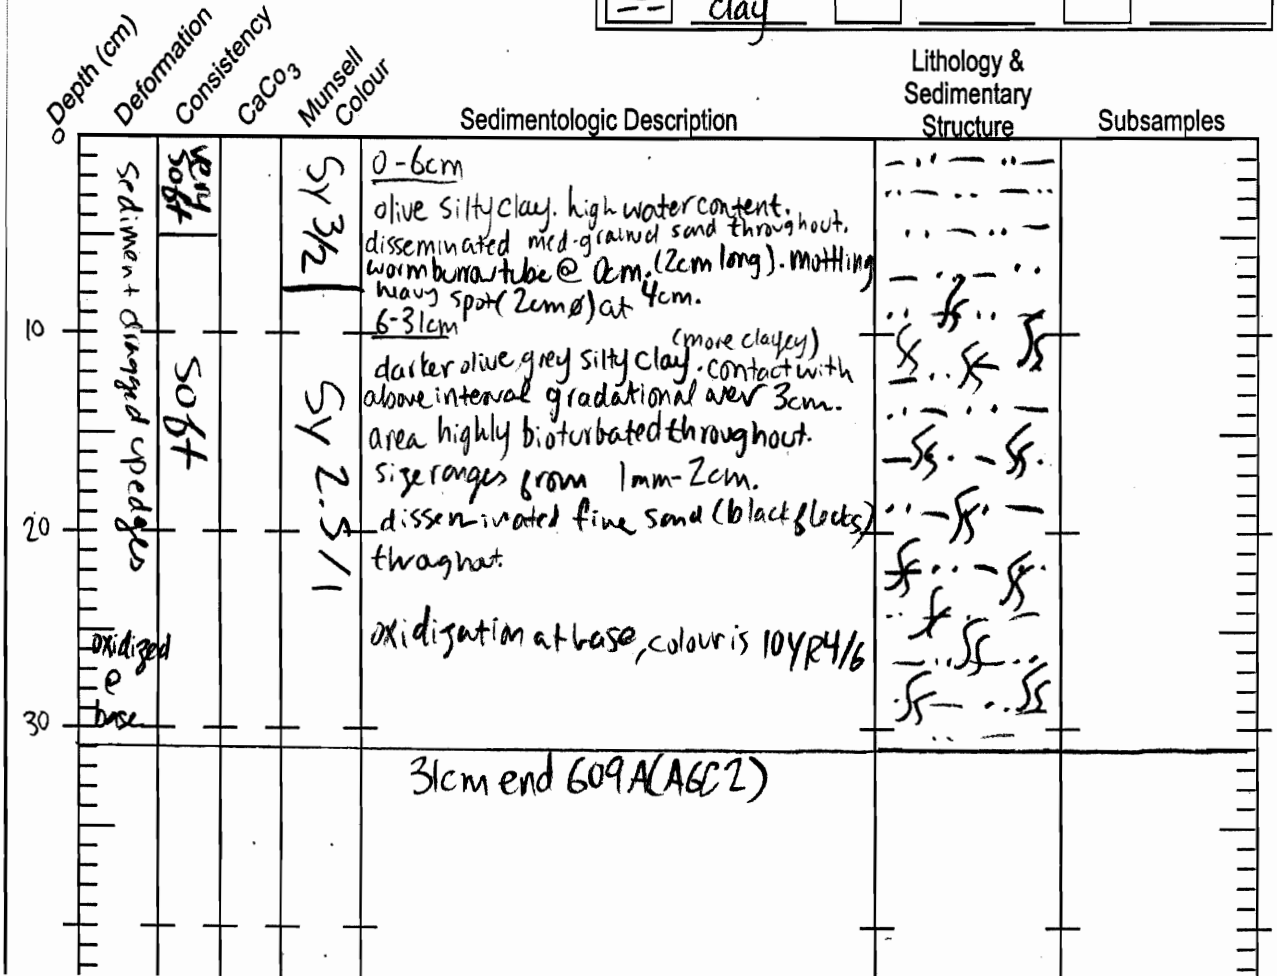 clay
Depth (cm)
Deformation
Consistency
CaCo3
Munsell
Colour
Sedimentologic Description
Lithology &
Sedimentary
Structure
Subsamples
0
10
20
30
sediment dragged up edges
oxidized
@
base
very
soft
soft
5Y 3/2
5Y 2.5/1
0-6cm
olive silty clay. high water content.
disseminated med-grained sand throughout.
worm burrow tube @ 0cm. (2cm long). mottling
heavy spot (2cm ø) at 4cm.
6-31cm
(more clayey)
darker olive grey silty clay. contact with
above interval gradational over 3cm.
area highly bioturbated throughout.
size ranges from 1mm-2cm.
disseminated fine sand (black flecks)
throughout.
oxidization at base, colour is 10YR4/6
31cm end 609A(AGC2)